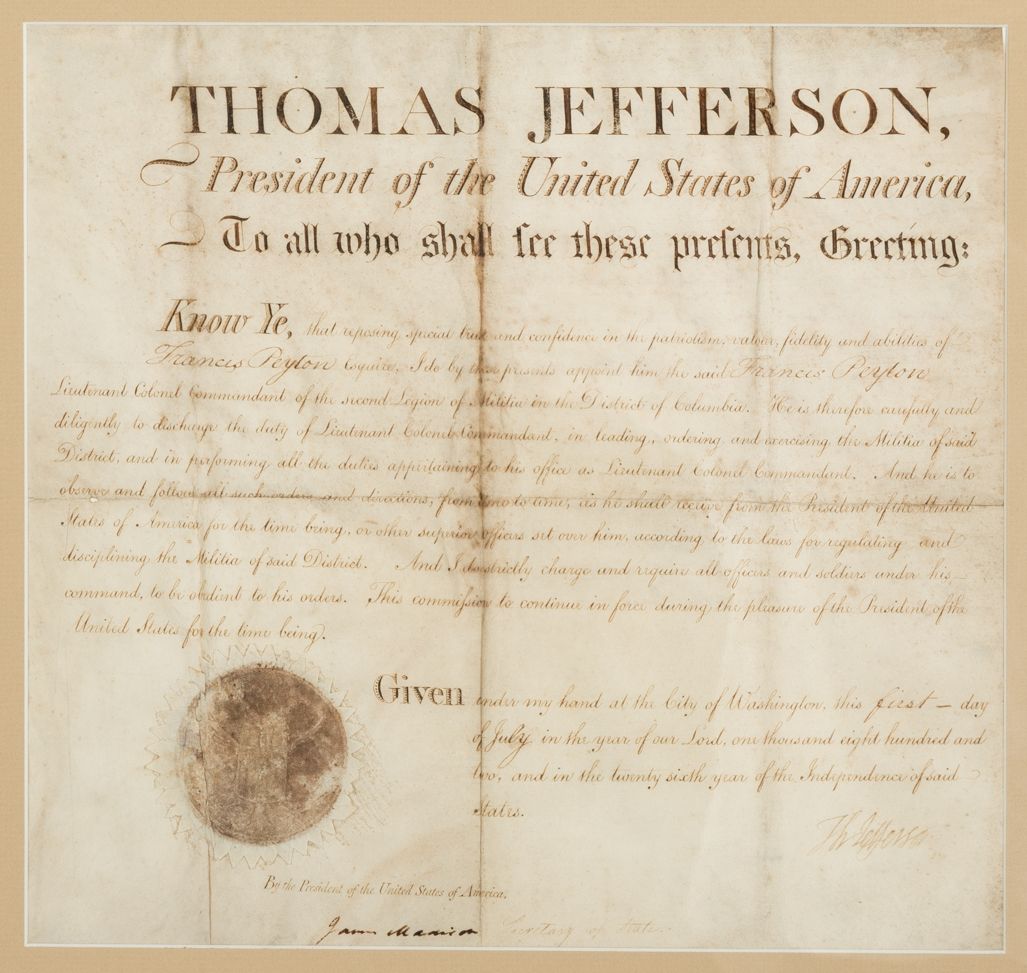 THOMAS JEFFERSON,
President of the United States of America,
To all who shall see these presents, Greeting:
Know Ye, that reposing special trust and confidence in the patriotism, valour, fidelity and abilities of
Francis Peyton Esquire, I do by these presents appoint him the said Francis Peyton
Lieutenant Colonel Commandant of the second Legion of Militia in the District of Columbia. He is therefore carefully and
diligently to discharge the duty of Lieutenant Colonel Commandant, in leading, ordering and exercising the Militia of said
District, and in performing all the duties appertaining to his office as Lieutenant Colonel Commandant. And he is to
observe and follow all such orders and directions, from time to time, as he shall receive from the President of the United
States of America for the time being, or other superior officers set over him, according to the laws for regulating and
disciplining the Militia of said District. And I do strictly charge and require all officers and soldiers under his
command, to be obedient to his orders. This commission to continue in force during the pleasure of the President of the
United States for the time being.
Given under my hand at the City of Washington, this first — day
of July in the year of our Lord, one thousand eight hundred and
two, and in the twenty sixth year of the Independence of said
States.
Th Jefferson
By the President of the United States of America.
James Madison Secretary of State.